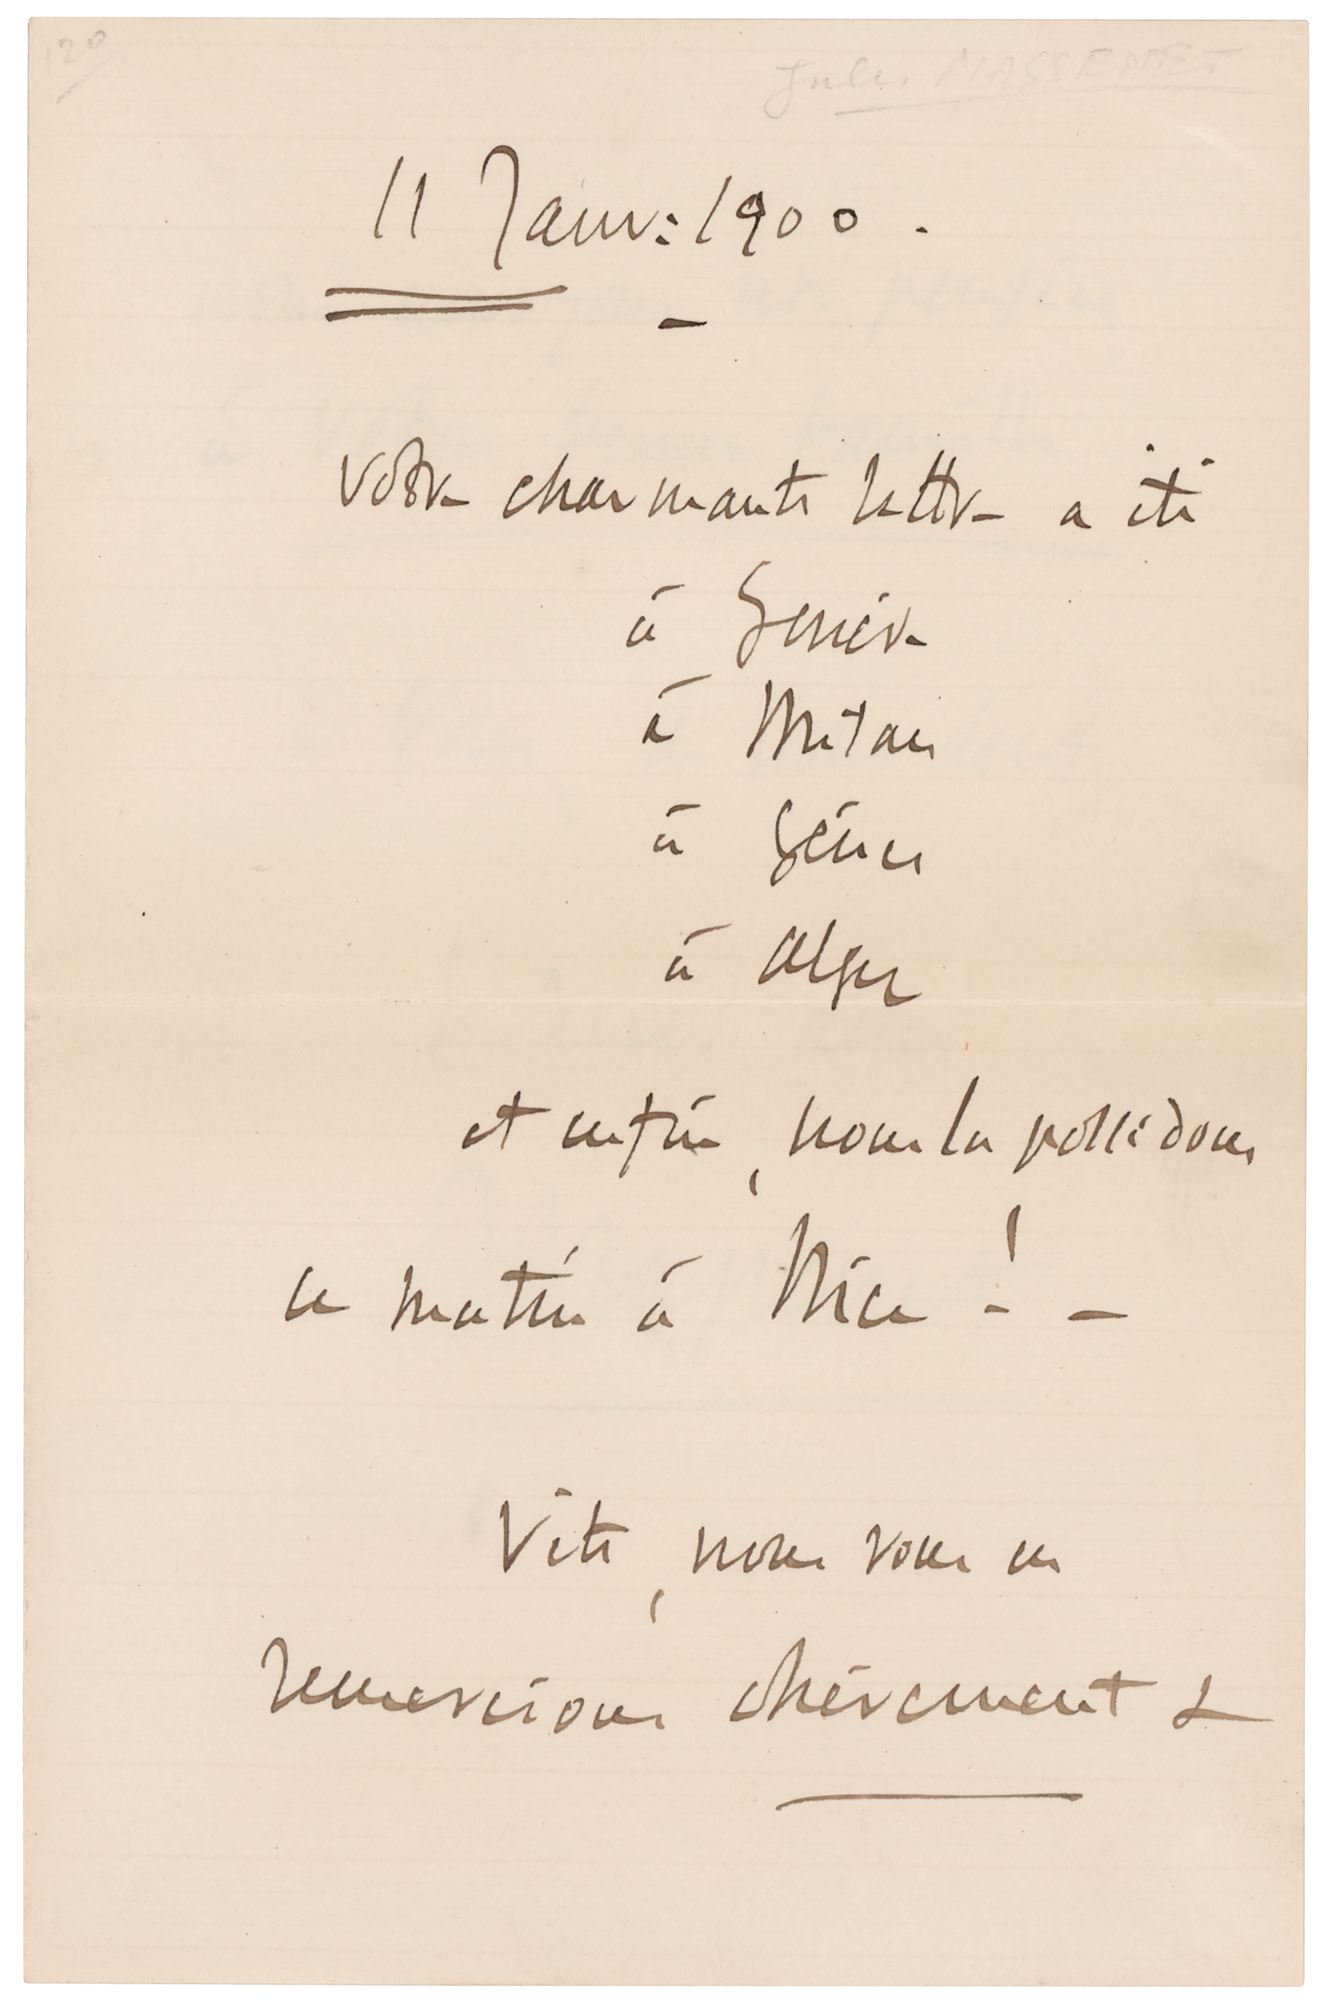 120
Jules MASSENET
11 Janv: 1900.
Votre charmante lettre a été
à Genève
à Milan
à Gênes
à Alger
et enfin, nous la possédons
ce matin à Nice ! -
Vite, nous vous en
remercions chèrement &